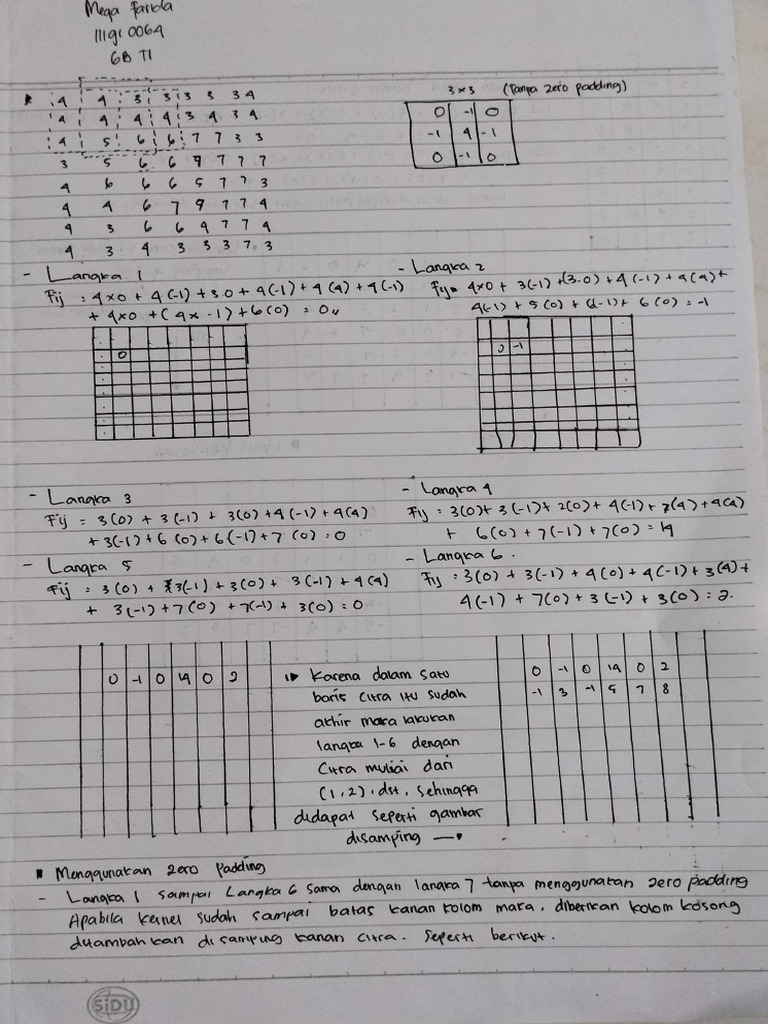 Mega Farida
111910064
6B TI
4 4 3 3 3 3 3 4
4 4 4 4 3 4 3 4
4 5 6 6 7 7 3 3
3 5 6 6 7 7 7
4 6 6 6 5 7 7 3
4 4 6 7 9 7 7 4
4 3 6 6 4 7 7 4
4 3 4 3 3 3 7 3
3 x 3 (Tanpa zero padding)
0 -1 0
-1 4 -1
0 -1 0
- Langka 1
Fij = 4x0 + 4(-1) + 3.0 + 4(-1) + 4(4) + 4(-1)
+ 4x0 + (4x -1) + 6(0) = 0
0
- Langka 2
Fij = 4x0 + 3(-1) + (3.0) + 4(-1) + 4(4) +
4(-1) + 5(0) + (-1) + 6(0) = -1
0 -1
- Langka 3
Fij = 3(0) + 3(-1) + 3(0) + 4(-1) + 4(4)
+ 3(-1) + 6(0) + 6(-1) + 7(0) = 0
- Langka 4
Fij = 3(0) + 3(-1) + 2(0) + 4(-1) + (4) + 4(4)
+ 6(0) + 7(-1) + 7(0) = 14
- Langka 5
Fij = 3(0) + 3(-1) + 3(0) + 3(-1) + 4(4)
+ 3(-1) + 7(0) + 7(-1) + 3(0) = 0
- Langka 6.
Fij = 3(0) + 3(-1) + 4(0) + 4(-1) + 3(4) +
4(-1) + 7(0) + 3(-1) + 3(0) = 2.
0 -1 0 14 0 2
Karena dalam satu
baris citra itu sudah
akhir maka lakukan
langka 1-6 dengan
Citra muliai dari
(1,2), dst, sehingga
didapat seperti gambar
disamping
0 -1 0 14 0 2
-1 3 -1 5 7 8
Menggunakan zero padding
- Langka 1 sampai Langka 6 sama dengan langka 7 tanpa menggunakan zero padding
Apabila kernel sudah sampai batas kanan kolom maka, diberikan kolom kosong
ditambahkan disamping kanan citra. Seperti berikut.
SiDU